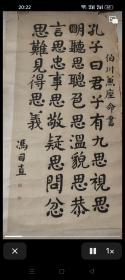 20:22
伯川燕座命書
孔子曰君子有九思視思
明聽思聰色思溫貌思恭
言思忠事思敬疑思問忿
思難見得思義
馮司直
1x